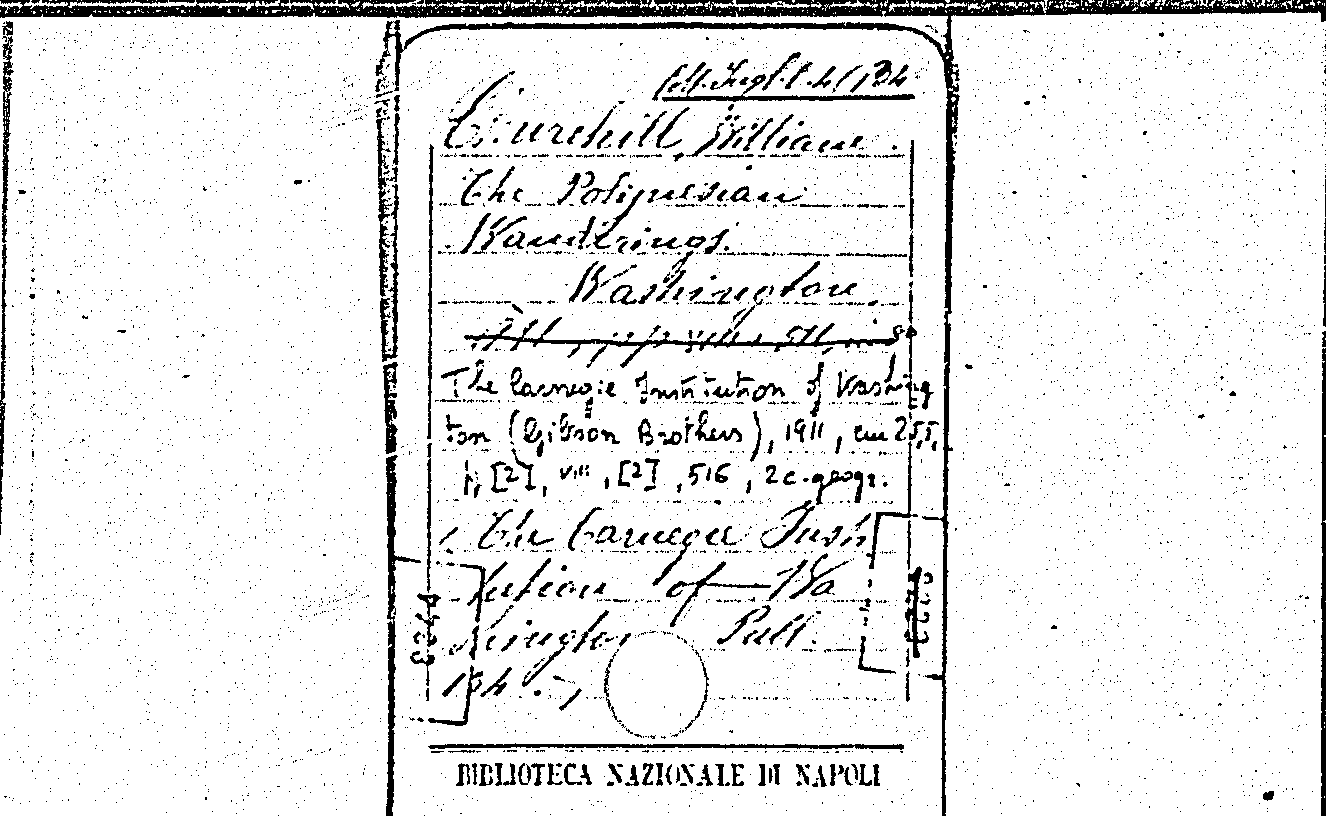 Coll. Ingl. C. 4/134
Churchill, William.
The Polynesian
Wanderings.
Washington.
The Carnegie Institution of Washing
ton (Gibson Brothers), 1911, cm 25,5,
p. [2], VIII, [2], 516, 2 c. geogr.
The Carnegie Insti
tution of Wa
shington Publ.
134.
BIBLIOTECA NAZIONALE DI NAPOLI